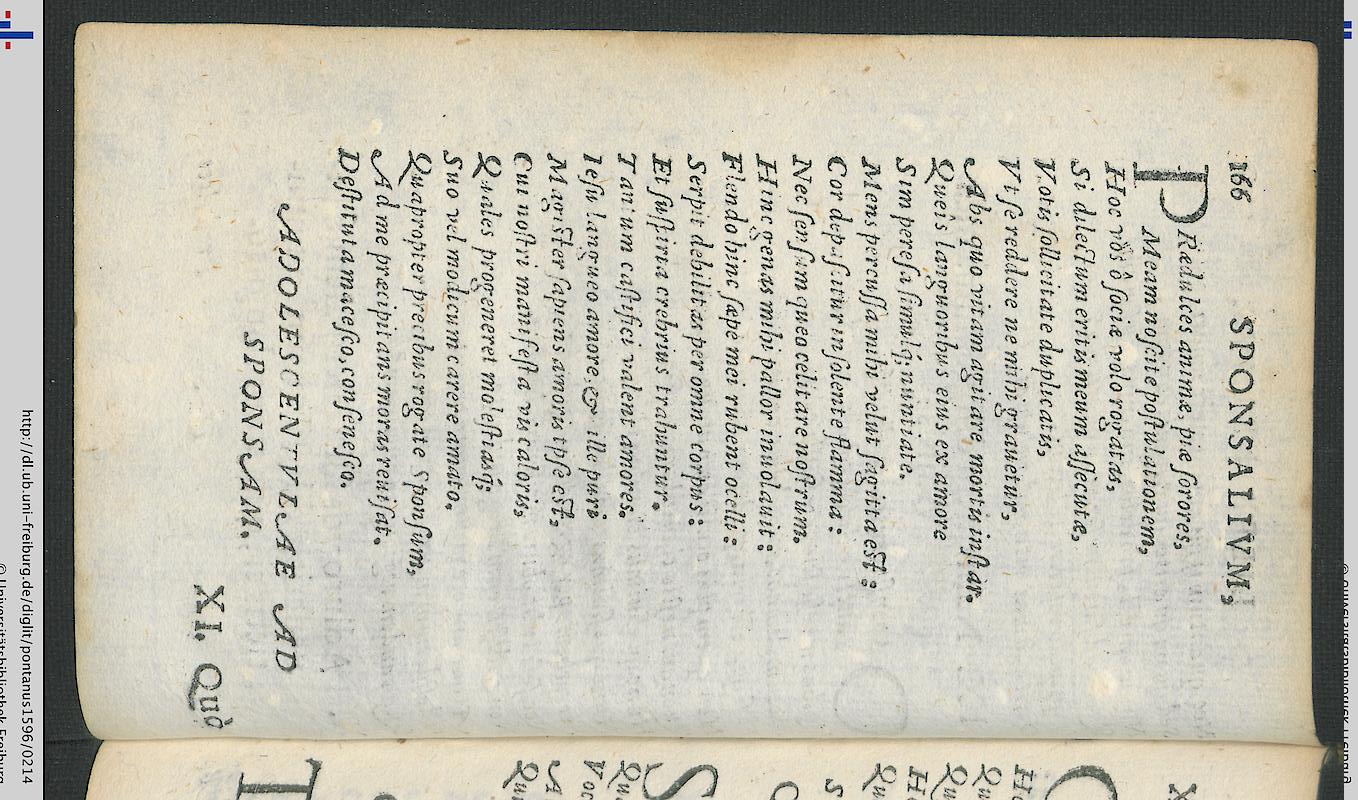 166 SPONSALIVM,
PRædulces animæ, piæ ſorores,
Meam noſcite poſtulationem,
Hoc vos ô ſociæ volo rogatas,
Si dilectum eritis meum aſſecutæ,
Votis ſollicitate duplicatis,
Vt ſe reddere ne mihi grauetur,
Abs quo vitam agitare mortis inſtar.
Queîs languoribus eius ex amore
Sim pereſa ſimulq́; nuntiate.
Mens percuſſa mihi velut ſagitta eſt:
Cor depaſcitur inſolente flamma:
Nec ſenſim queo celitare noſtrum.
Hinc genas mihi pallor inuolauit:
Flendo hinc ſæpe mei rubent ocelli:
Serpit debilitas per omne corpus:
Et ſuſpiria crebrius trahuntur.
Tantum caſtifici valent amores.
Ieſu langueo amore, & ille puri
Magiſter ſapiens amoris ipſe eſt,
Cui noſtri manifeſta vis caloris,
Quales progeneret moleſtiasq́;
Suo vel modicum carere amato.
Quapropter precibus rogate Sponſum,
Ad me præcipitans moras reuiſat.
Deſtituta maceſco, conſeneſco.
ADOLESCENTVLAE AD
SPONSAM.
XI. Quò
http://dl.ub.uni-freiburg.de/diglit/pontanus1596/0214
© Universitätsbibliothek Freiburg